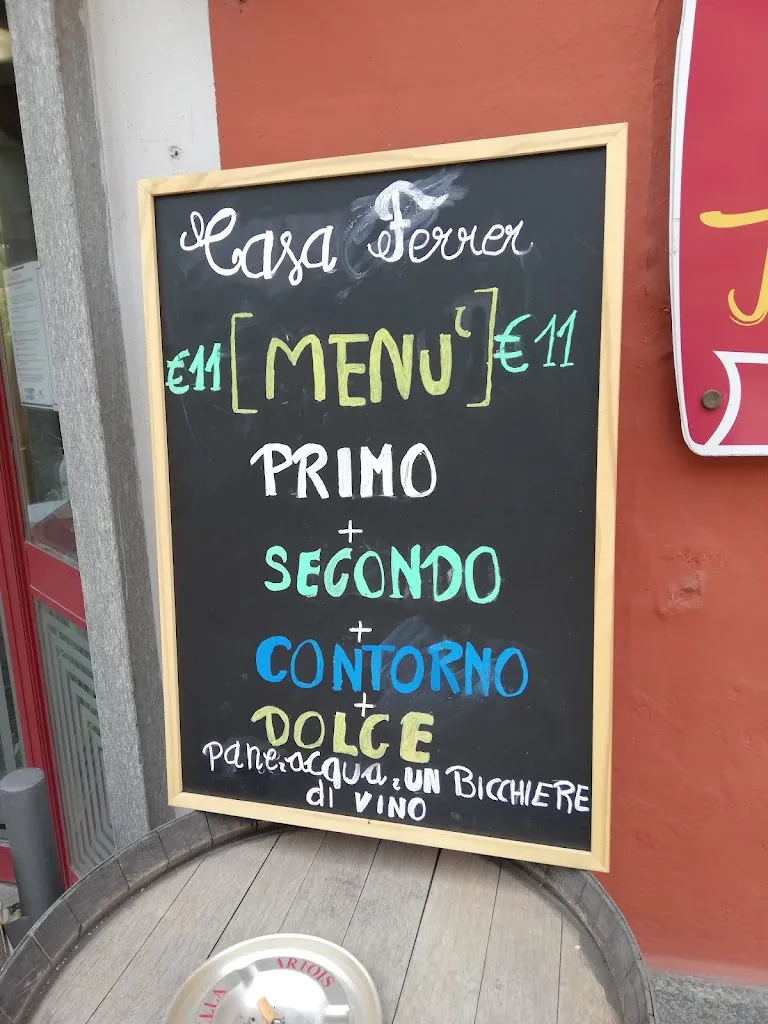 Casa Ferrer
€11 [MENU'] €11
PRIMO
+
SECONDO
+
CONTORNO
+
DOLCE
pane, acqua, UN BICCHIERE
di VINO
ARTOIS